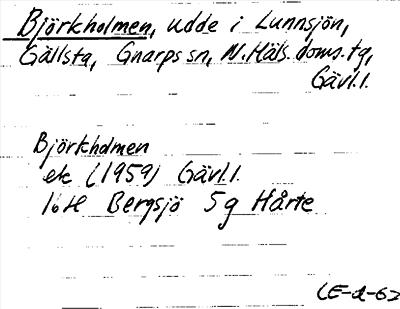 Björkholmen, udde i Lunnsjön,
Gällsta, Gnarps sn, N. Häls. doms. tg,
Gävl.l.
Björkholmen
ek (1959) Gävl.l.
16H Bergsjö 5g Hårte